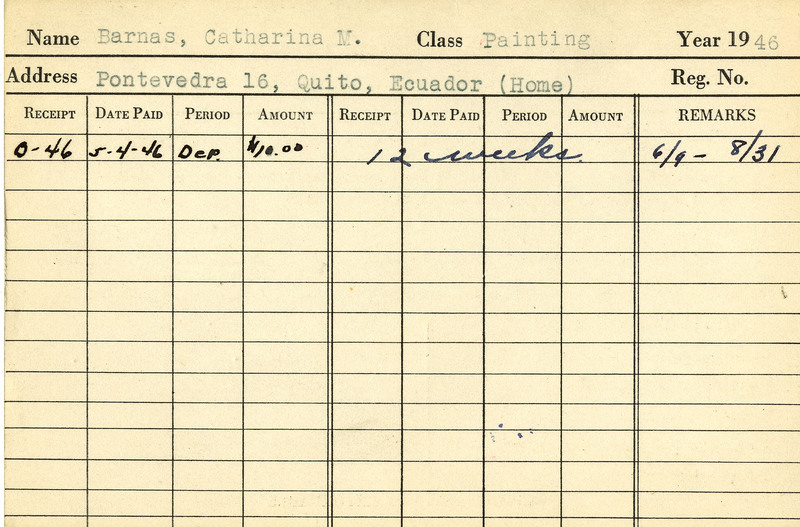 Name Barnas, Catharina M. Class Painting Year 1946
Address Pontevedra 16, Quito, Ecuador (Home) Reg. No.
RECEIPT DATE PAID PERIOD AMOUNT RECEIPT DATE PAID PERIOD AMOUNT REMARKS
0-46 5-4-46 Dep. $10.00 12 weeks. 6/9 - 8/31